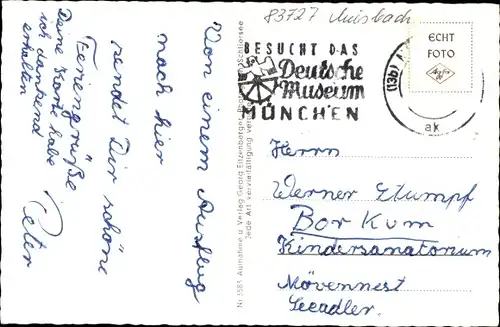 83727 Miesbach
BESUCHT DAS
Deutsche
Museum
MÜNCHEN
(13b)
ECHT
FOTO
Agfa
ak
Von einem Ausflug
nach hier
sendet Dir schöne
Feriengrüße
Peter
Deine Karte habe
ich dankend
erhalten
Nr. 3583 Aufnahme u. Verlag Georg Etzenberger,
Jede Art vervielfältigung
Herrn
Werner Stumpf
Borkum
Kindersanatorium
Mövennest
Seeadler.